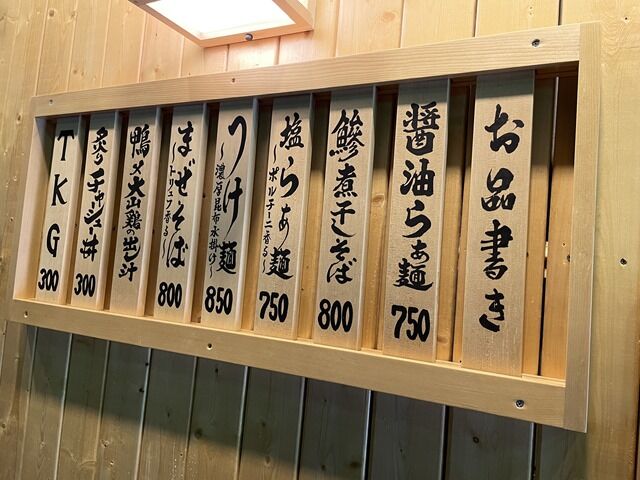 お品書き
醤油らぁ麺
750
鯵煮干しそば
800
塩らぁ麺
~ポルチーニ香る~
750
つけ麺
~濃厚昆布水掛け~
850
まぜそば
~トリュフ香る~
800
鴨×大山鶏の出し汁
炙りチャーシュー丼
300
TKG
300